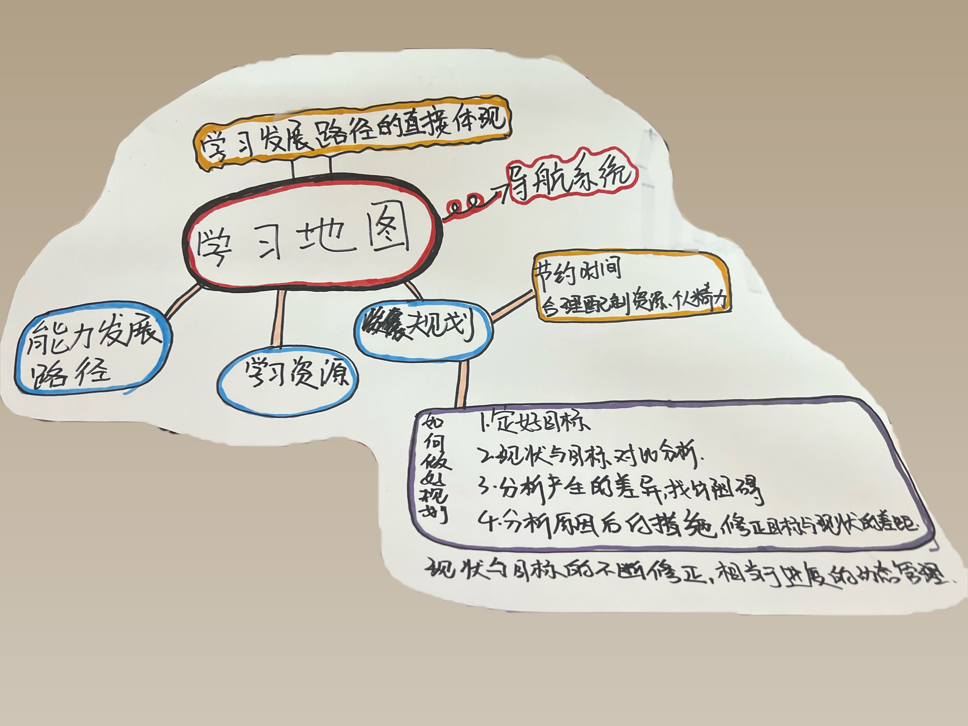 学习发展路径的直接体现
导航系统
学习地图
节约时间
合理配制资源、人、精力
能力发展
路径
学习资源
规划
如何做好规划
1.定好目标
2.现状与目标对比分析.
3.分析产生的差异,找出阻碍
4.分析原因后的措施,修正目标与现状的差距.
现状与目标的不断修正,相当于进度的动态管理.